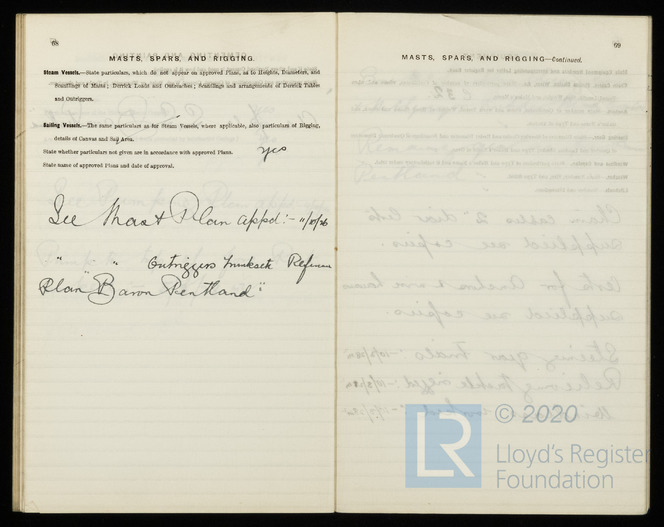 68
MASTS, SPARS, AND RIGGING.
Steam Vessels.—State particulars, which do not appear on approved Plans, as to Heights, Diameters, and
Scantlings of Masts; Derrick Loads and Outreaches; Scantlings and arrangements of Derrick Tables
and Outriggers.
Sailing Vessels.—The same particulars as for Steam Vessels, where applicable, also particulars of Rigging,
details of Canvas and Sail Area.
State whether particulars not given are in accordance with approved Plans. yes
State name of approved Plans and date of approval.
See Mast Plan appd:- 11/10/26
" " " Outriggers
Plan "Baron Pentland".
69
MASTS, SPARS, AND RIGGING—Continued.
LR
© 2020
Lloyd's Register
Foundation